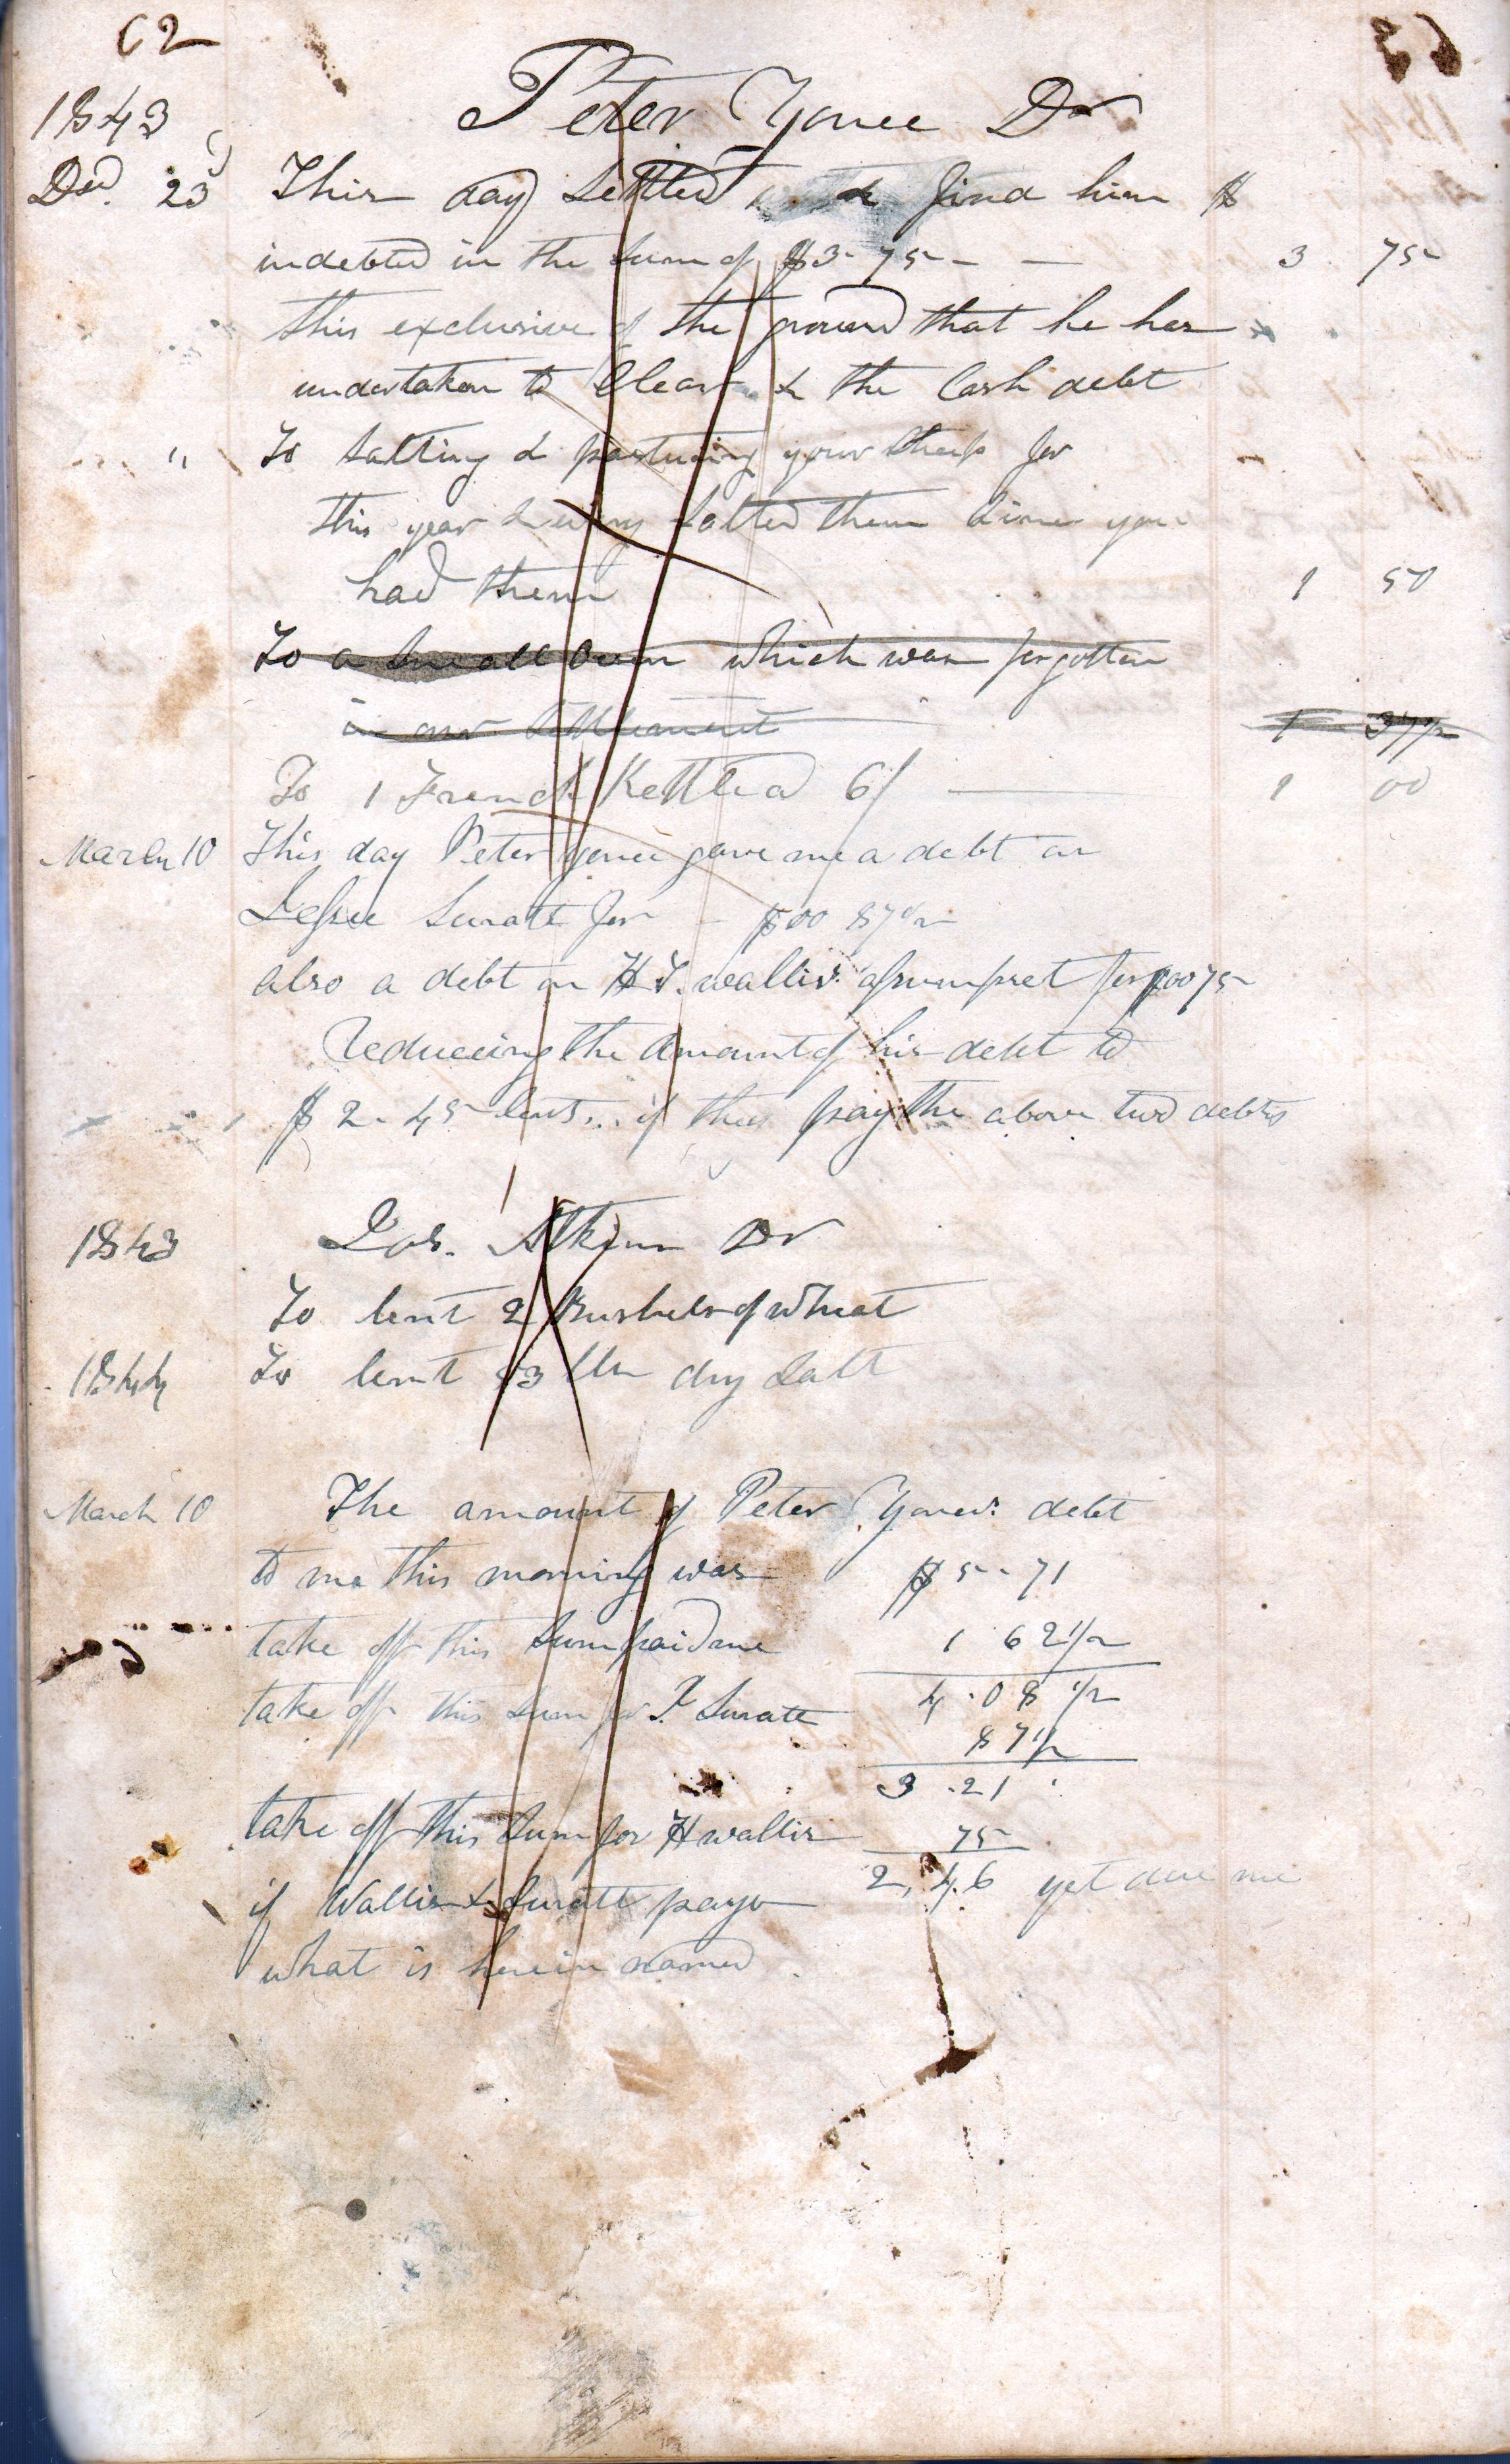 62
1843 Peter Youce Dr
Decr. 23 This day Settled & find him $
indebted in the Sum of $3-75- — 3 75
this exclusive of the ground that he has
undertaken to Clear & the Cash debt
" To Salting & pasturing your sheep for
this year & salted them Since you
had them 1 50
To a Small Oven which was forgotten
in our Settlement 1 37½
To 1 French Kettle a 6/ — 1 00
March 10 This day Peter Youce gave me a debt on
Jessee Suratt for - $00 87½
also a debt on H T. wallis' assumpset for $00 75
Reduceing the Amount of his debt to
$ 2-45 Cents... if they pay the above two debts
1843 Jos. Atkins Dr
To lent 2 Bushels of Wheat
1844 To lent 53 lbs dry Salt
March 10 The amount of Peter Youces debt
to me this morning was $5-71
take off this Sum paid me 1 62½
take off this Sum for J. Suratt 4.08½
87½
3.21
take off this Sum for H wallis 75
2,46 yet due me
if Wallis & Suratt pays
what is herein named